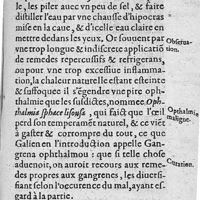 le, les piler auec vn peu de sel, & faire
distiller l'eau par vne chausse d'hipocras
mise en la caue, & d'icelle eau claire en
mettre dedans les yeux. Or souuent par
vne trop longue & indiscrete applicatiõ
Obseruation.
de remedes repercussifs & refrigerans,
ou pour vne trop excessiue inflamma-
tion, la chaleur naturelle estant esteinte
& suffoquee il s'égendre vne pire oph-
thalmie que les susdictes, nommee Oph-
thalmia
qui fait que l'œil
Ophthalmie maligne.
perd son temperamẽt naturel, & ce viẽt
à gaster & corrompre du tout, ce que
Galien en l'introduction appelle Gan-
grena ophthalmou : que si telle chose
aduenoit, on auroit recours aux reme-
Curation.
des propres aux gangrenes, les diuersi-
fiant selon l'ocurence du mal, ayant es-
gard à la partie.